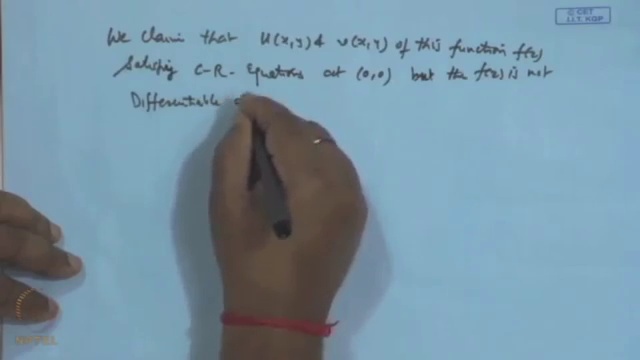 © CET
I.I.T. KGP
We claim that u(x,y) & v(x,y) of this function f(z)
Satisfing C-R- Equations at (0,0) but the f(z) is not
Differentiable
NPTEL